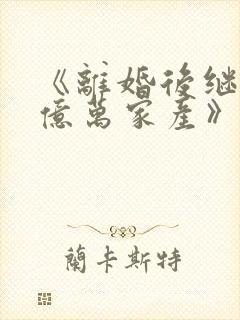 《離婚後继
億萬家産》
蘭卡斯特